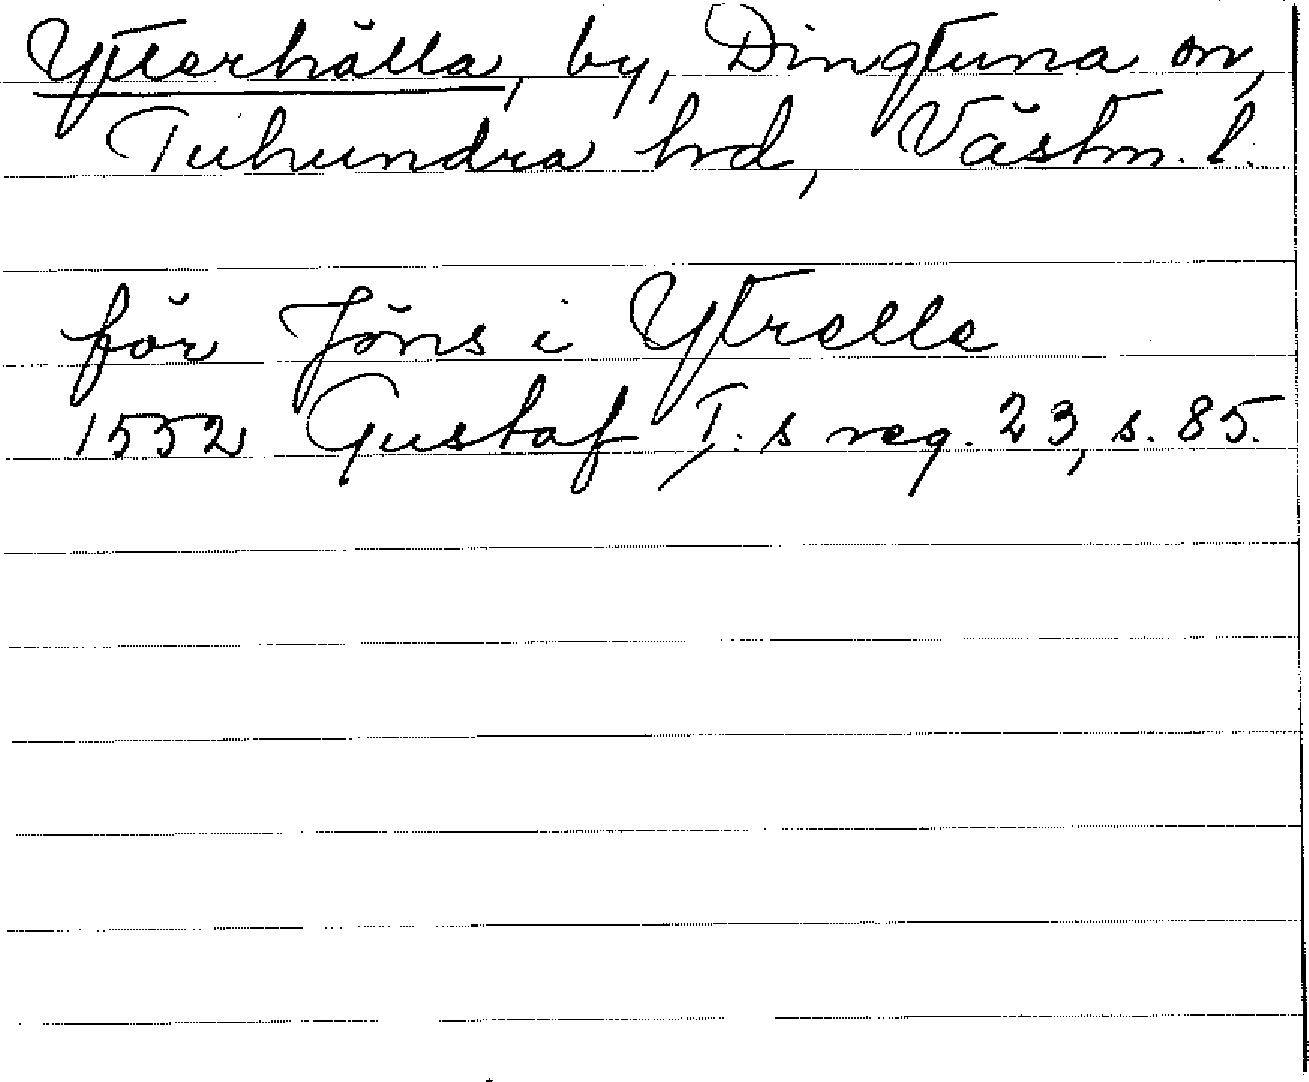 Ytterhälla, by, Dingtuna sn,
Tuhundra hrd, Västm. l.
för Jöns i Ytrelle
1552 Gustaf I:s reg. 23, s. 85.